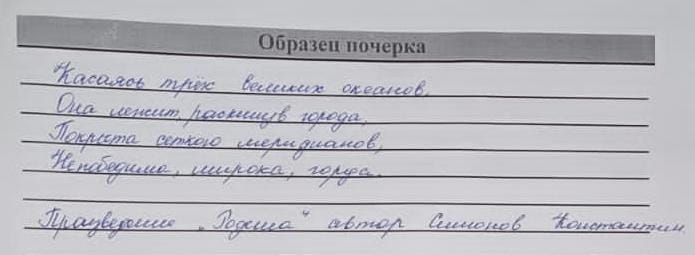 Образец почерка
Касаясь трёх великих океанов,
Она лежит, раскинув города,
Покрыта сеткою меридианов,
Непобедима, широка, горда.
Произведение "Родина" автор Симонов Константин.